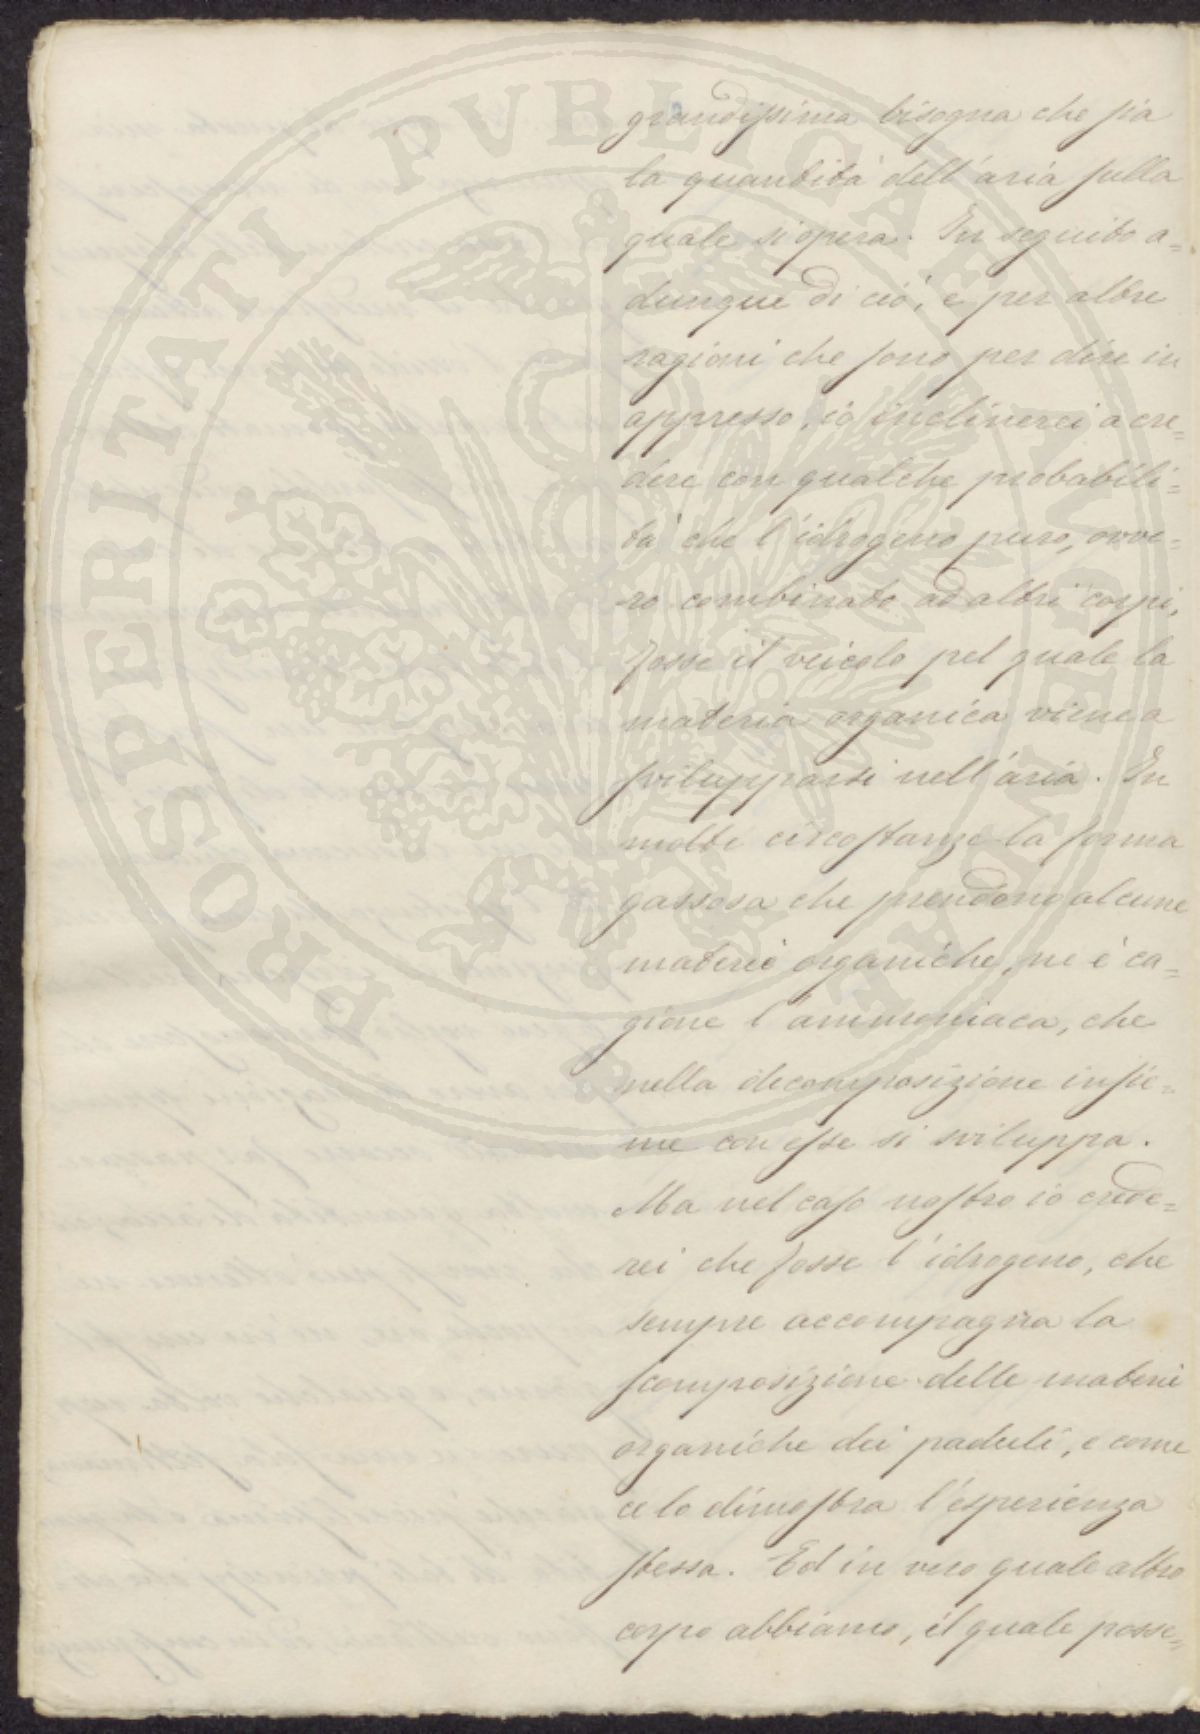 PROSPERITATI PVBLICAE AVGENDAE
grandissima bisogna che sia
la quantità dell'aria sulla
quale si opera. In seguito a=
dunque di ciò, e per altre
ragioni che sono per dire in
appresso, io inclinerei a cre=
dere con qualche probabili=
tà che l'idrogeno puro, ovve=
ro combinato ad altri corpi,
fosse il veicolo pel quale la
materia organica viene a
svilupparsi nell'aria. In
molte circostanze la forma
gassosa che prendono alcune
materie organiche, ne è ca=
gione l'ammoniaca, che
nella decomposizione insie=
me con esse si sviluppa.
Ma nel caso nostro io crede=
rei che fosse l'idrogeno, che
sempre accompagna la
scomposizione delle materie
organiche dei paduli, e come
ce lo dimostra l'esperienza
stessa. Ed in vero quale altro
corpo abbiamo, il quale posse=